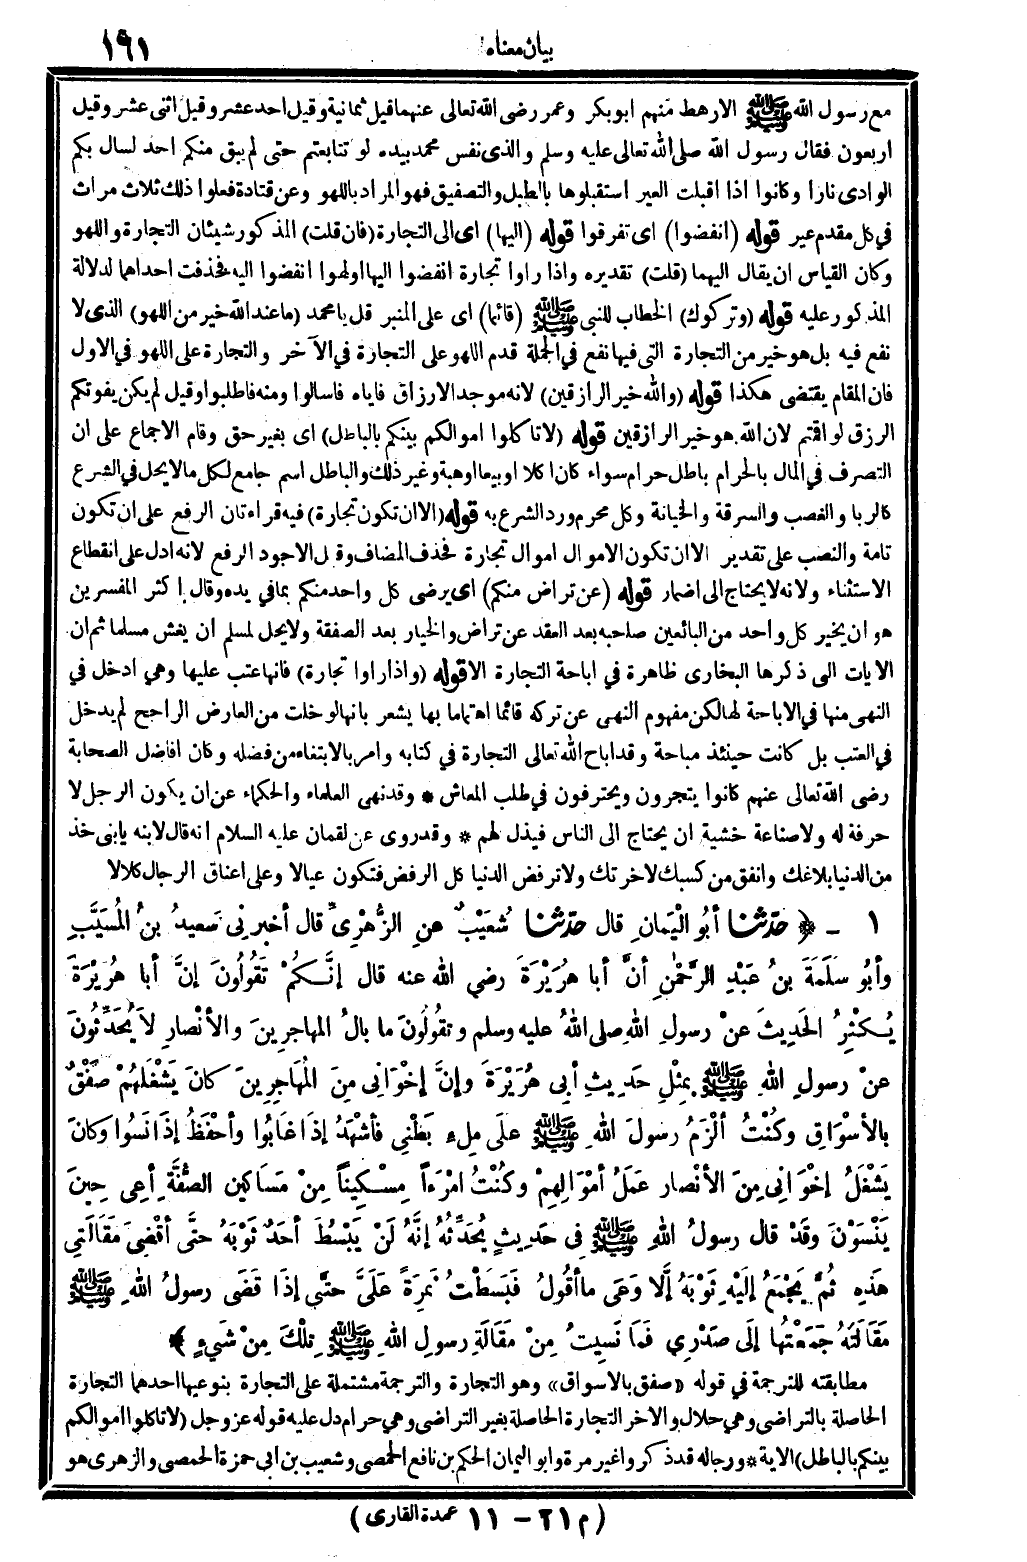 بيان معناه
١٦١
مع رسول الله ﷺ الارهط منهم ابوبكر وعمر رضى الله تعالى عنهما قيل ثمانية وقيل احد عشر وقيل اثنى عشر وقيل
اربعون فقال رسول الله صلى الله تعالى عليه وسلم والذى نفس محمد بيده لو تتابعتم حتى لم يبق منكم احد لسال بكم
الوادى نارا وكانوا اذا اقبلت العير استقبلوها بالطبل والتصفيق فهو المراد باللهو وعن قتادة فعلوا ذلك ثلاث مرات
فى كل مقدم عير قوله (انفضوا) اى تفرقوا قوله (اليها) اى الى التجارة (فان قلت) المذكور شيئان التجارة واللهو
وكان القياس ان يقال اليهما (قلت) تقديره واذا راوا تجارة انفضوا اليها اولهوا انفضوا اليه فحذفت احداهما لدلالة
المذكور عليه قوله (وتركوك) الخطاب للنبى ﷺ (قائما) اى على المنبر قل يامحمد (ماعند الله خير من اللهو) الذى لا
نفع فيه بل هو خير من التجارة التى فيها نفع فى الجملة قدم اللهو على التجارة فى الآخر والتجارة على اللهو فى الاول
فان المقام يقتضى هكذا قوله (والله خير الرازقين) لانه موجد الارزاق فاياه فاسالوا ومنه فاطلبوا وقيل لم يكن يفوتكم
الرزق لو اقمتم لان الله هو خير الرازقين قوله (لاتاكلوا اموالكم بينكم بالباطل) اى بغير حق وقام الاجماع على ان
التصرف فى المال بالحرام باطل حرام سواء كان اكلا او بيعا اوهبة وغير ذلك والباطل اسم جامع لكل مالايحل فى الشرع
كالربا والغصب والسرقة والخيانة وكل محرم ورد الشرع به قوله (الا ان تكون تجارة) فيه قراءتان الرفع على ان تكون
تامة والنصب على تقدير الا ان تكون الاموال اموال تجارة فحذف المضاف وقيل الاجود الرفع لانه ادل على انقطاع
الاستثناء ولانه لا يحتاج الى اضمار قوله (عن تراض منكم) اى يرضى كل واحد منكم بما فى يده وقال اكثر المفسرين
هو ان يخير كل واحد من البائعين صاحبه بعد العقد عن تراض والخيار بعد الصفقة ولايحل لمسلم ان يغش مسلما ثم ان
الايات الى ذكرها البخارى ظاهرة فى اباحة التجارة الا قوله (واذا راوا تجارة) فانها عتب عليها وهى ادخل فى
النهى منها فى الاباحة لها لكن مفهوم النهى عن تركه قائما اهتماما بها يشعر بانها لو خلت من العارض الراجح لم يدخل
فى العتب بل كانت حينئذ مباحة وقد اباح الله تعالى التجارة فى كتابه وامر بالابتغاء من فضله وكان افاضل الصحابة
رضى الله تعالى عنهم كانوا يتجرون ويحترفون فى طلب المعاش * وقد نهى العلماء والحكماء عن ان يكون الرجل لا
حرفة له ولا صناعة خشية ان يحتاج الى الناس فيذل لهم * وقد روى عن لقمان عليه السلام انه قال لابنه يابنى خذ
من الدنيا بلاغك وانفق من كسبك لاخرتك ولا ترفض الدنيا كل الرفض فتكون عيالا وعلى اعناق الرجال كلالا
١ - ﴿ حَدَّثَنَا أبُو الْيَمانِ قال حدّثنا شُعَيْبٌ عنِ الزُّهْرِىِّ قال أخبرنِى سَعيدُ بنُ المُسَيَّبِ
وأبُو سَلَمَةَ بنُ عَبْدِ الرَّحْمٰنِ أنَّ أبا هُرَيْرَةَ رضي الله عنه قال إنَّكُمْ تَقُولُونَ إنَّ أبا هُرَيْرَةَ
يُكْثِرُ الحَدِيثَ عنْ رسولِ اللهِ صلى اللهُ عليه وسلم وتقُولُونَ ما بالُ المهاجِرِينَ والأنْصارِ لاَ يُحَدِّثُونَ
عنْ رسولِ اللهِ ﷺ بِمِثْلِ حَدِيثِ أبِى هُرَيْرَةَ وإنَّ إخْوَانِى مِنَ المُهَاجِرِينَ كانَ يَشْغَلُهُمْ صَفْقٌ
بالأسْوَاقِ وكُنْتُ ألْزَمُ رسولَ اللهِ ﷺ علَى مِلءِ بَطْنِى فأشْهَدُ إذَا غابُوا وأحْفَظُ إذَا نَسُوا وكانَ
يَشْغَلُ إخْوَانِى مِنَ الأنْصار عَمَلُ أمْوَالِهِمْ وكُنْتُ امْرَءَاً مِسْكِيناً مِنْ مَسَاكِينِ الصُّفَّةِ أعِى حِينَ
يَنْسَوْنَ وقَدْ قال رسولُ اللهِ ﷺ فِى حَدِيثٍ يُحَدِّثُهُ إنَّهُ لَنْ يَبْسُطَ أحَدٌ ثَوْبَهُ حتَّى أقْضِىَ مَقَالَتِي
هَذِهِ ثُمَّ يَجْمَعُ إلَيْهِ ثَوْبَهُ إلَّا وَعَى ما أقُولُ فَبَسَطْتُ نَمِرَةً عَلَىَّ حتَّى إذَا قَضَى رسولُ اللهِ ﷺ
مَقَالَتَهُ جَمَعْتُهَا إلَى صَدْرِي فَمَا نَسِيتُ مِنْ مَقَالَةِ رسولِ اللهِ ﷺ تِلْكَ مِنْ شَيْءٍ ﴾
مطابقته للترجمة فى قوله «صفق بالاسواق» وهو التجارة والترجمة مشتملة على التجارة بنوعيها احدهما التجارة
الحاصلة بالتراضى وهى حلال والاخر التجارة الحاصلة بغير التراضى وهى حرام دل عليه قوله عز وجل (لاتاكلوا اموالكم
بينكم بالباطل) الاية * ورجاله قد ذكروا غير مرة وابو اليمان الحكم بن نافع الحمصى وشعيب بن ابى حمزة الحمصى والزهرى هو
(م ٢١ - ١١ عمدة القارى)